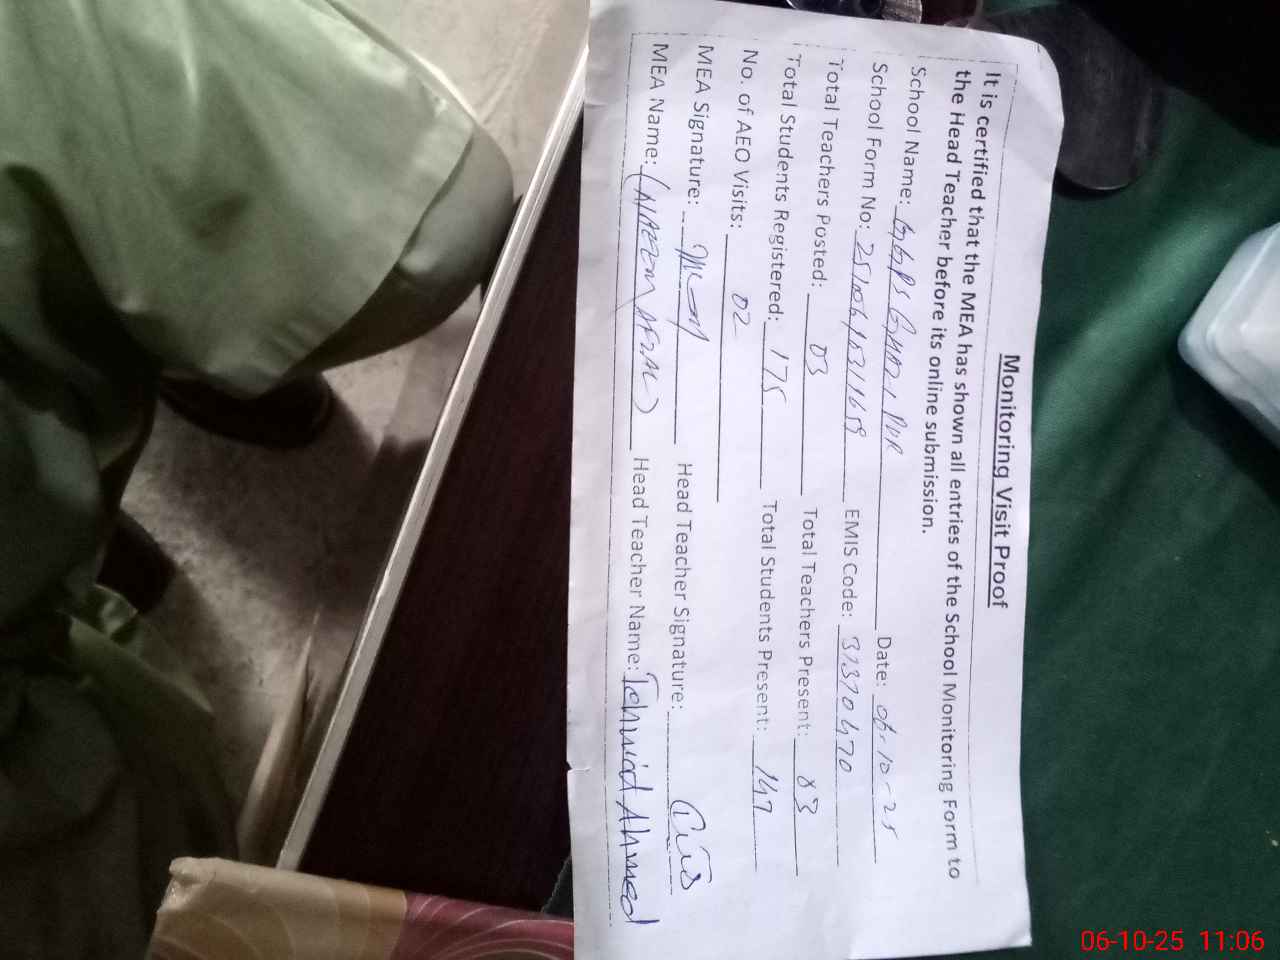 Monitoring Visit Proof
It is certified that the MEA has shown all entries of the School Monitoring Form to
the Head Teacher before its online submission.
School Name: GGPS PUR Date: 06-10-25
School Form No: EMIS Code: 31370470
Total Teachers Posted: 03 Total Teachers Present: 03
Total Students Registered: 175 Total Students Present: 147
No. of AEO Visits: 02
MEA Signature: Head Teacher Signature:
MEA Name: AFZAL) Head Teacher Name: Ahmed
06-10-25 11:06